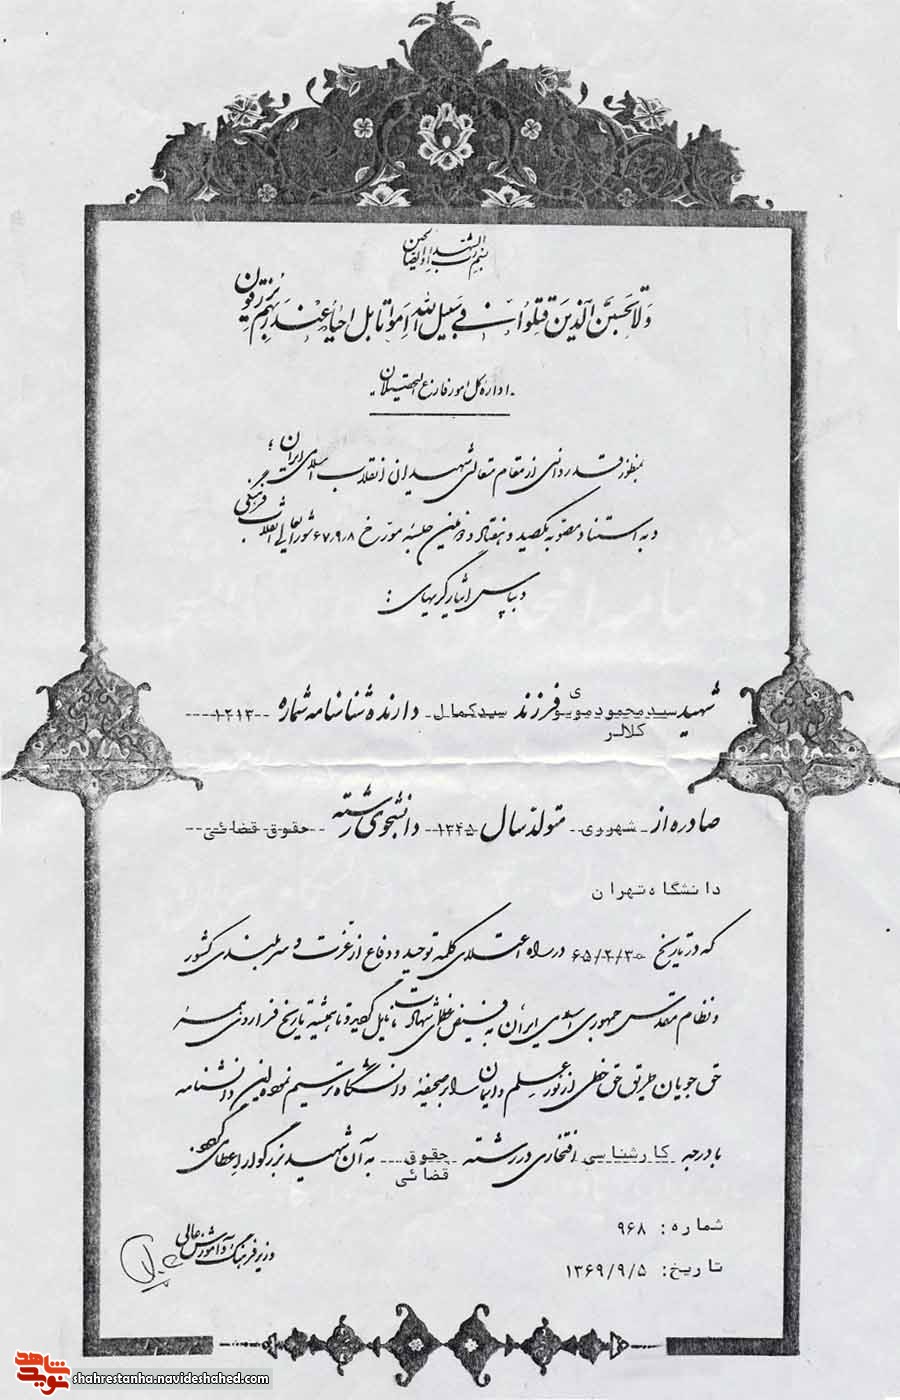 بسم رب الشهداء و الصالحین
ولا تحسبن الذین قتلوا فی سبیل الله امواتا بل احیاء عند ربهم یرزقون
اداره کل امور فارغ التحصیلان
بمنظور قدردانی از مقام متعالی شهیدان انقلاب اسلامی ایران ؛
و به استناد مصوبه یکصد و هفتاد و دومین جلسه مورخ ۶۷/۹/۸ شورایعالی انقلاب فرهنگی
و بپاس ایثارگریهای :
شهید سید محمود موسوی کلالر فرزند سیدکمال دارنده شناسنامه شماره ۱۲۱۳
صادره از شهرری متولد سال ۱۳۴۵ دانشجوی رشته حقوق قضائی
دانشگاه تهران
که در تاریخ ۶۵/۲/۳۰ در راه اعتلای کلمه توحید و دفاع از عزت و سربلندی کشور
و نظام مقدس جمهوری اسلامی ایران به فیض عظمای شهادت نایل گردید و تا همیشه تاریخ فراروی همه
حق جویان طریق حق خطی از نور علم و ایمان را بر صحیفه دانشگاه ترسیم نمود این دانشنامه
با درجه کارشناسی افتخاری در رشته حقوق قضائی به آن شهید بزرگوار اعطا می گردد
شماره: ۹۶۸
تاریخ: ۱۳۶۹/۹/۵
وزیر فرهنگ و آموزش عالی
نوید شاهد
shahrestanha.navideshahed.com